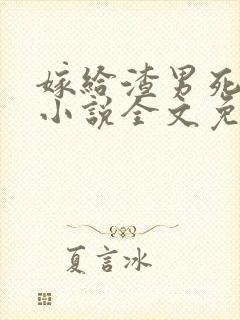 嫁給渣男死
小說全文免
夏言冰